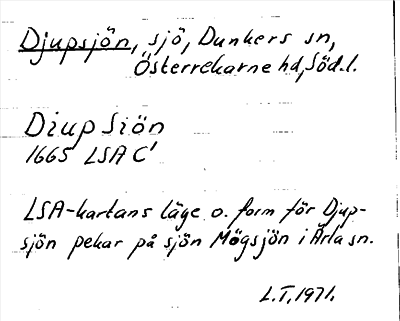 Djupsjön, sjö, Dunkers sn,
Österrekarne hd, Söd. l.
Diup Siön
1665 LSA C1
LSA-kartans läge o. form för Djup-
sjön pekar på sjön Mögsjön i Ärla sn.
L.T. 1971.